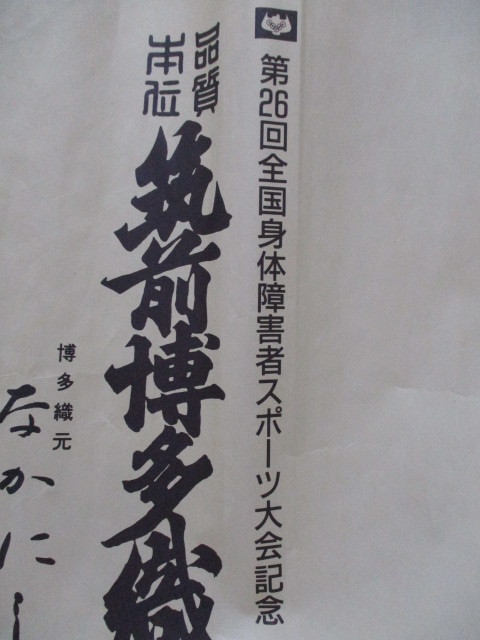 第26回全国身体障害者スポーツ大会記念
品質
本位
筑前博多織
博多織元
なかにし